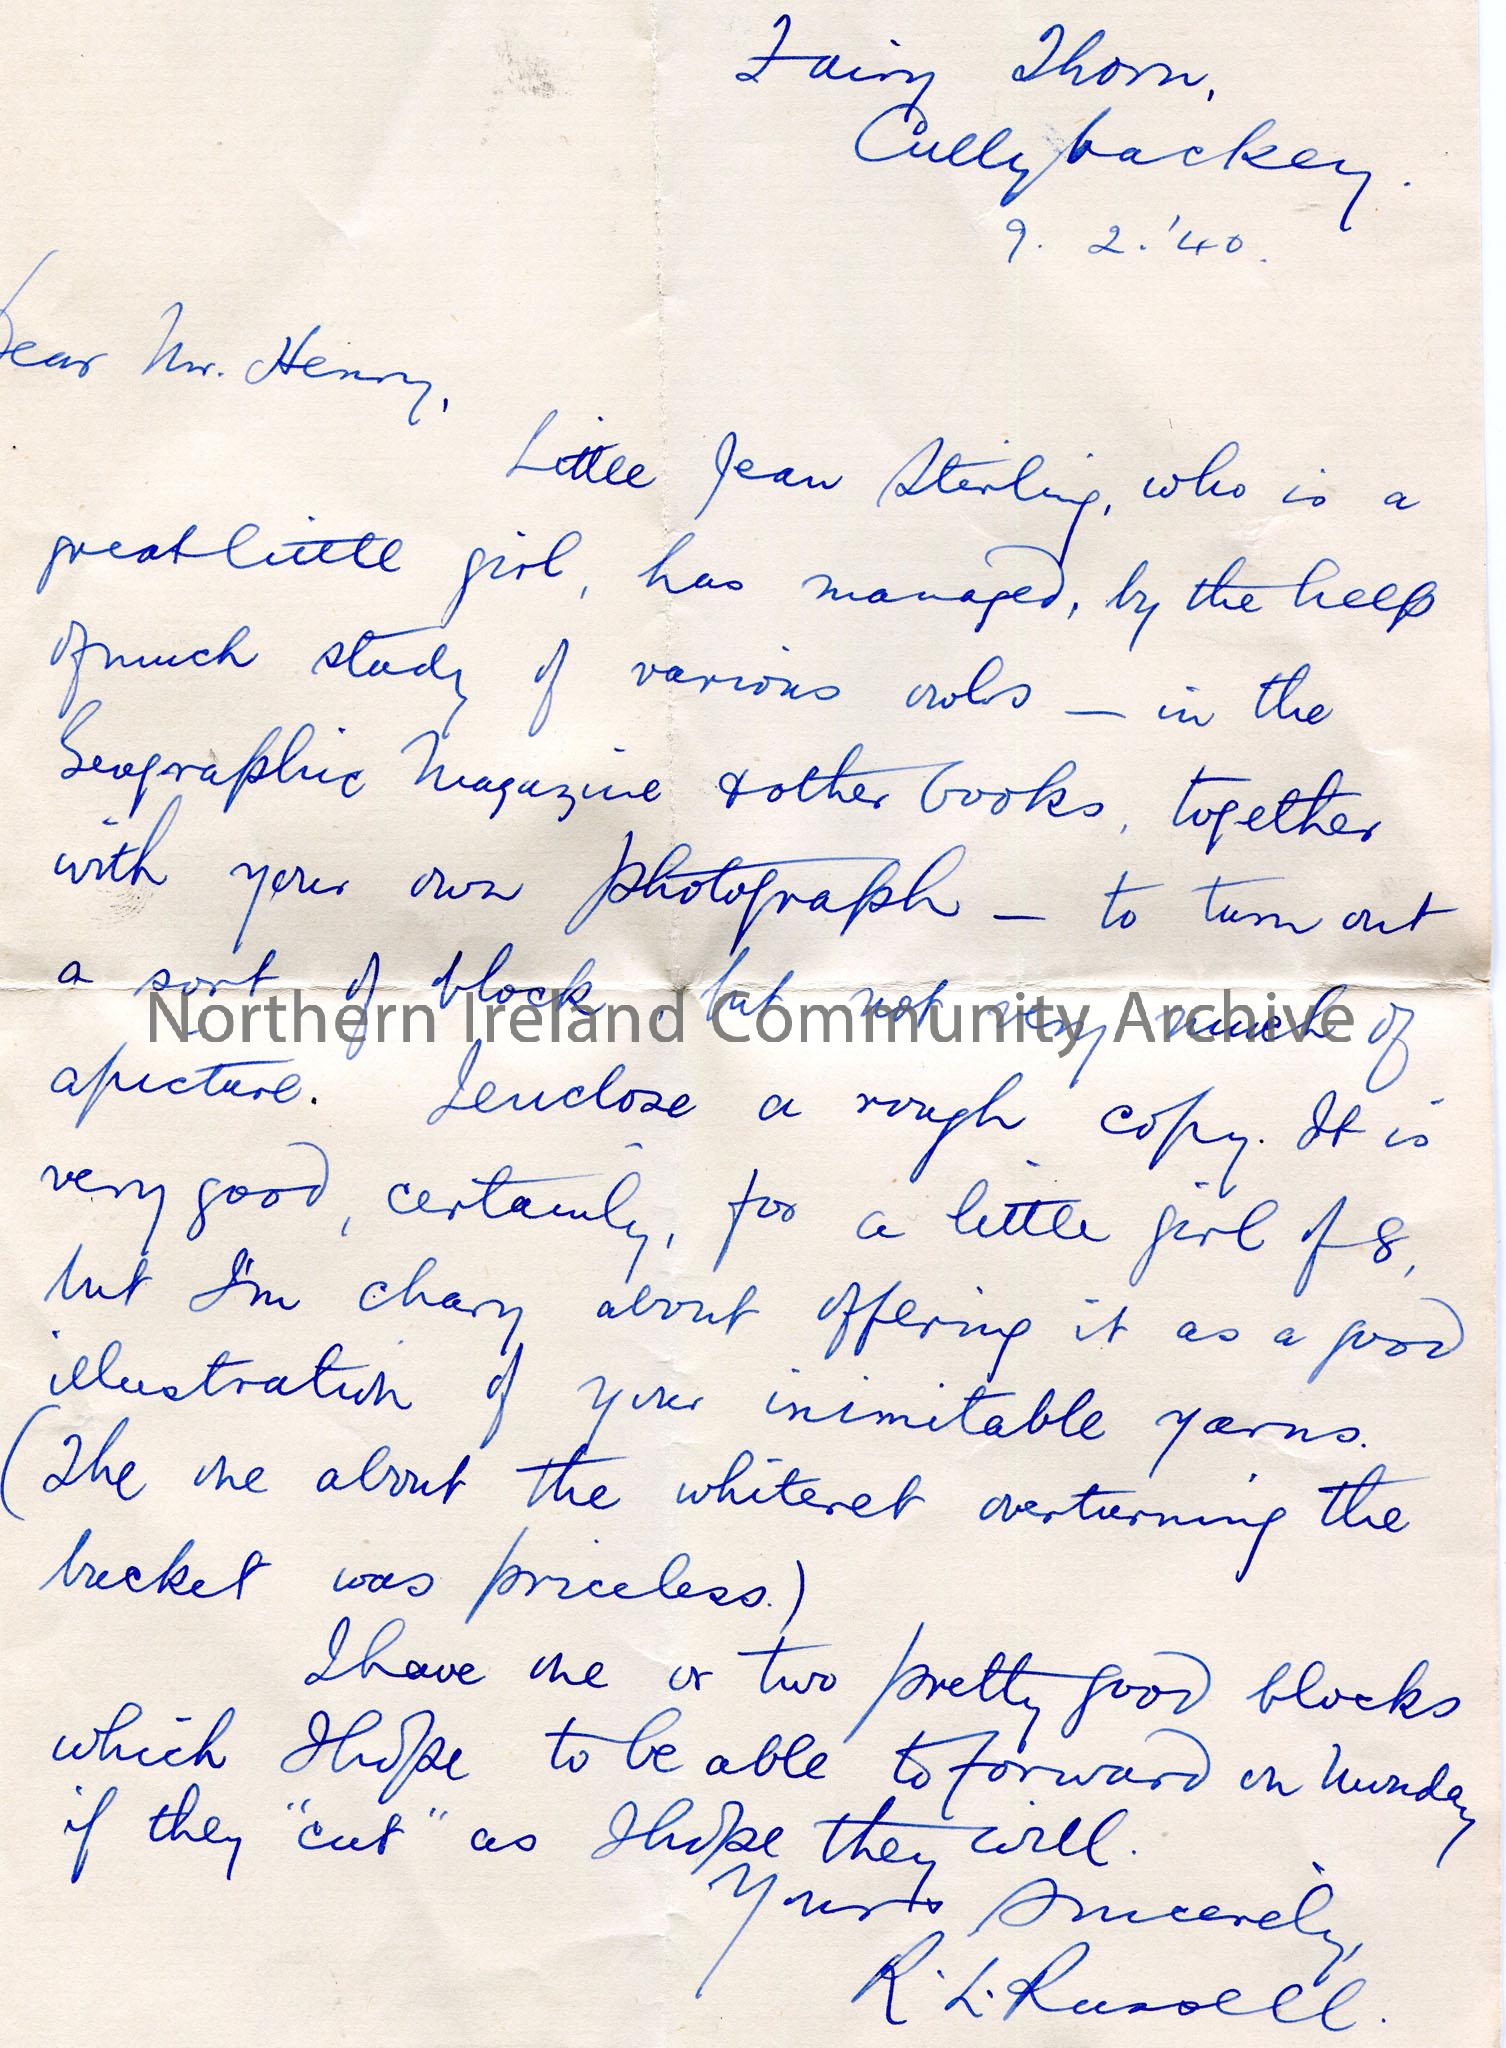 Fairy Thorn,
Cullybackey.
9. 2. '40.
Dear Mr. Henry,
Little Jean Stirling, who is a
great little girl, has managed, by the help
of much study of various owls — in the
Geographic Magazine & other books, together
with your own photograph — to turn out
a sort of block, but not very much of
a picture. I enclose a rough copy. It is
very good, certainly, for a little girl of 8,
but I'm chary about offering it as a good
illustration of your inimitable yarns.
(The one about the whiteret overturning the
bucket was priceless.)
I have one or two pretty good blocks
which I hope to be able to forward on Monday
if they "cut" as I hope they will.
Yours sincerely,
R. L. Russell.
Northern Ireland Community Archive